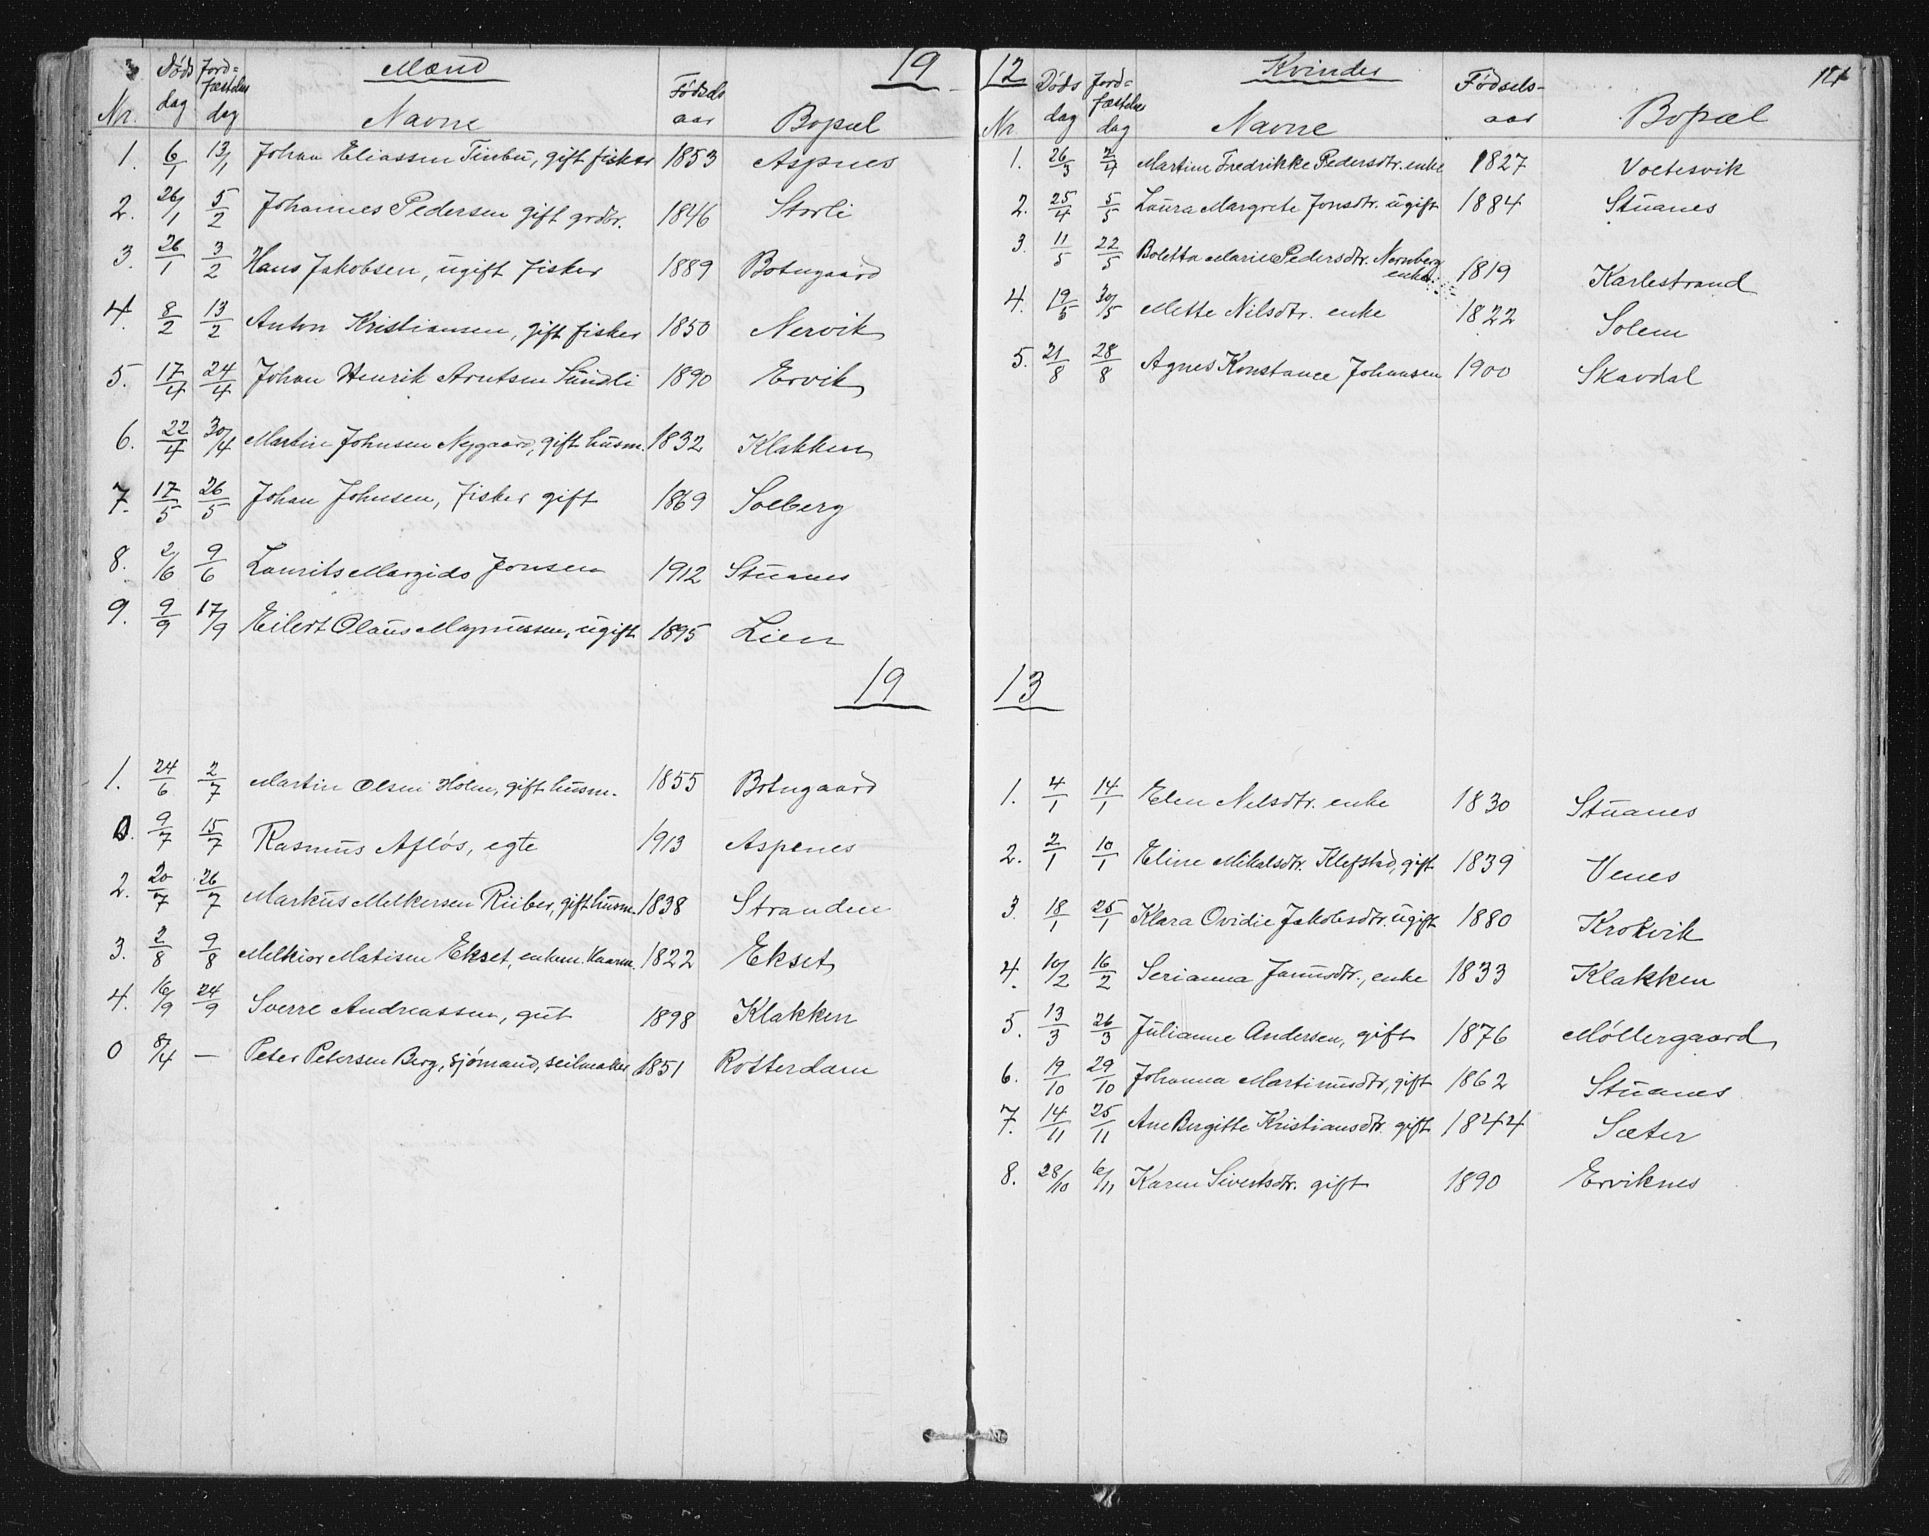 Mænd 19
Nr. Døds dag Jord= fæstelses dag Navne Fødsels aar Bopæl
1. 6/1 13/1 Johan Eliassen Tinbu, gift fisker 1853 Aspnes
2. 26/1 5/2 Johannes Pedersen gift grdbr. 1846 Storli
3. 26/1 3/2 Hans Jakobsen, ugift fisker 1889 Botngaard
4. 8/2 13/2 Anton Kristiansen, gift fisker 1850 Nervik
5. 17/4 24/4 Johan Henrik Arntsen Sundli 1890 Ervik
6. 22/4 30/4 Martin Johnsen Nygaard, gift husm. 1832 Klakken
7. 17/5 26/5 Johan Johnsen, fisker gift 1869 Solberg
8. 2/6 9/6 Laurits Margido Jonsen 1912 Stuanes
9. 9/9 17/9 Eilert Olaus Magnussen, ugift 1895 Lien
19
1. 24/6 2/7 Martin Olsen Holm, gift husm. 1855 Botngaard
0. 9/7 15/7 Rasmus Afløs, egte 1913 Aspenes
2. 20/7 26/7 Markus Melkersen Riiber, gift husm. 1838 Stranden
3. 2/8 9/8 Melkior Matisen Ekset, enkem. Kaarm. 1822 Ekset
4. 16/9 24/9 Sverre Andreassen, gut 1898 Klakken
0 8/4 — Peter Petersen Berg, sjømand, seilmaker 1851 Rotterdam
12 Kvinder 121
Nr. Døds dag Jord= fæstelses dag Navne Fødsels- aar Bopæl
1. 26/3 2/4 Martine Fredrikke Pedersdtr. enke 1827 Voetesvik
2. 25/4 5/5 Laura Margrete Jonsdtr. ugift 1884 Stuanes
3. 11/5 22/5 Boletta Marie Pedersdtr. Nernberg
enke. 1819 Karlestrand
4. 19/5 30/5 Mette Nilsdtr. enke 1822 Solem
5. 21/8 28/8 Agnes Konstance Johansen 1900 Skavdal
13
1. 4/1 14/1 Elen Nilsdtr. enke 1830 Stuanes
2. 2/1 10/1 Eline Mikalsdtr. Klefstad, gift 1839 Venes
3. 18/1 25/1 Klara Ovidie Jakobsdtr. ugift 1880 Krokvik
4. 10/2 16/2 Serianna Janusdtr., enke 1833 Klakken
5. 13/3 26/3 Julianne Andersen, gift 1876 Møllergaard
6. 19/10 29/10 Johanna Martinusdtr, gift 1862 Stuanes
7. 14/11 25/11 Ane Birgitte Kristiansdtr. gift 1844 Sæter
8. 28/10 6/11 Karen Sivertsdtr. gift 1890 Erviknes